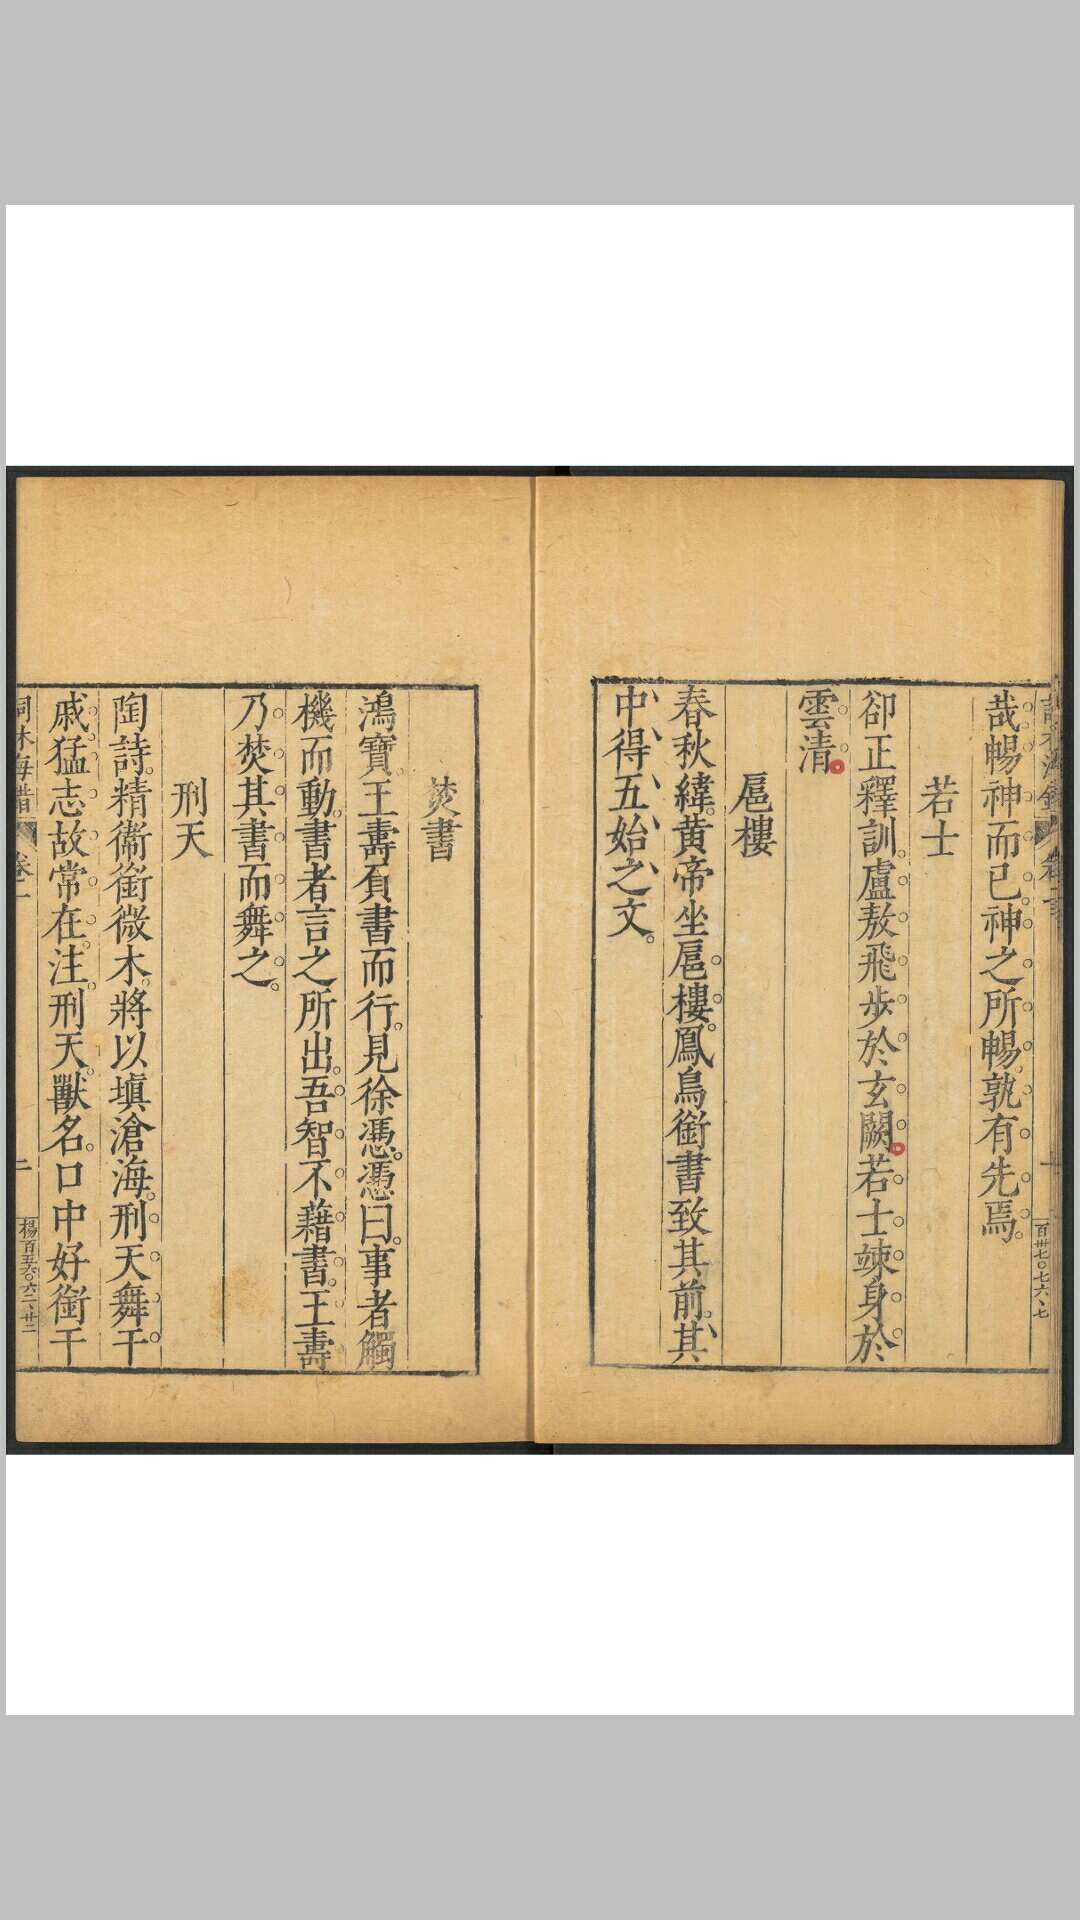 哉暢神而已神之所暢孰有先焉
若士
卻正釋訓盧敖飛步於玄闕若士竦身於
雲清
扈樓
春秋緯黃帝坐扈樓鳳鳥銜書致其前其
中得五始之文
焚書
鴻寶王壽負書而行見徐憑憑曰事者觸
機而動書者言之所出吾智不藉書王壽
乃焚其書而舞之
刑天
陶詩精衞銜微木將以塡滄海刑天舞干
戚猛志故常在注刑天獸名口中好銜干
卷一
二
楊百五六〇六二、廿二